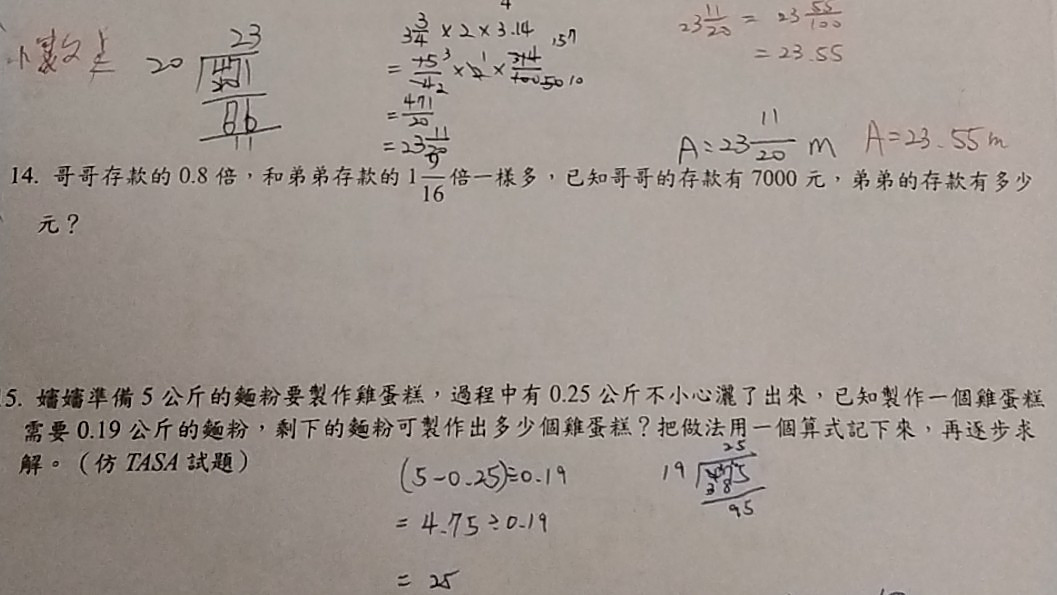 4
3 3/4 × 2 × 3.14
= 15/4 × 2 × 314/100
= 471/20
= 23 11/20
20 471
23
66
11
23 11/20 = 23 55/100
= 23.55
A:23 11/20 m A=23.55m
14. 哥哥存款的 0.8 倍，和弟弟存款的 1 9/16 倍一樣多，已知哥哥的存款有 7000 元，弟弟的存款有多少
元？
5. 嬸嬸準備 5 公斤的麵粉要製作雞蛋糕，過程中有 0.25 公斤不小心灑了出來，已知製作一個雞蛋糕
需要 0.19 公斤的麵粉，剩下的麵粉可製作出多少個雞蛋糕？把做法用一個算式記下來，再逐步求
解。（仿 TASA 試題）
(5-0.25)÷0.19
= 4.75÷0.19
= 25
25
19 475
38
95